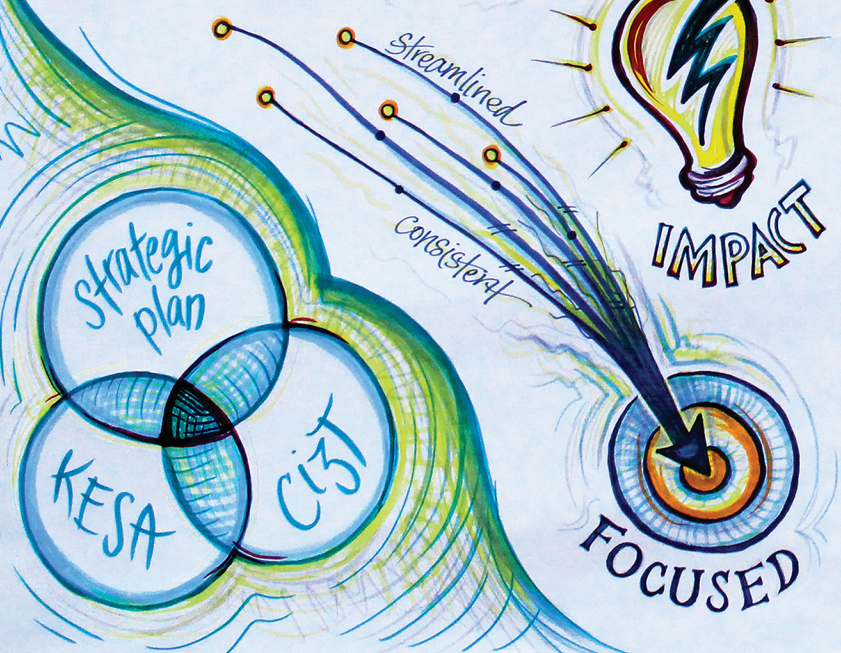 streamlined
consistent
IMPACT
strategic
plan
KESA
Ci3T
FOCUSED